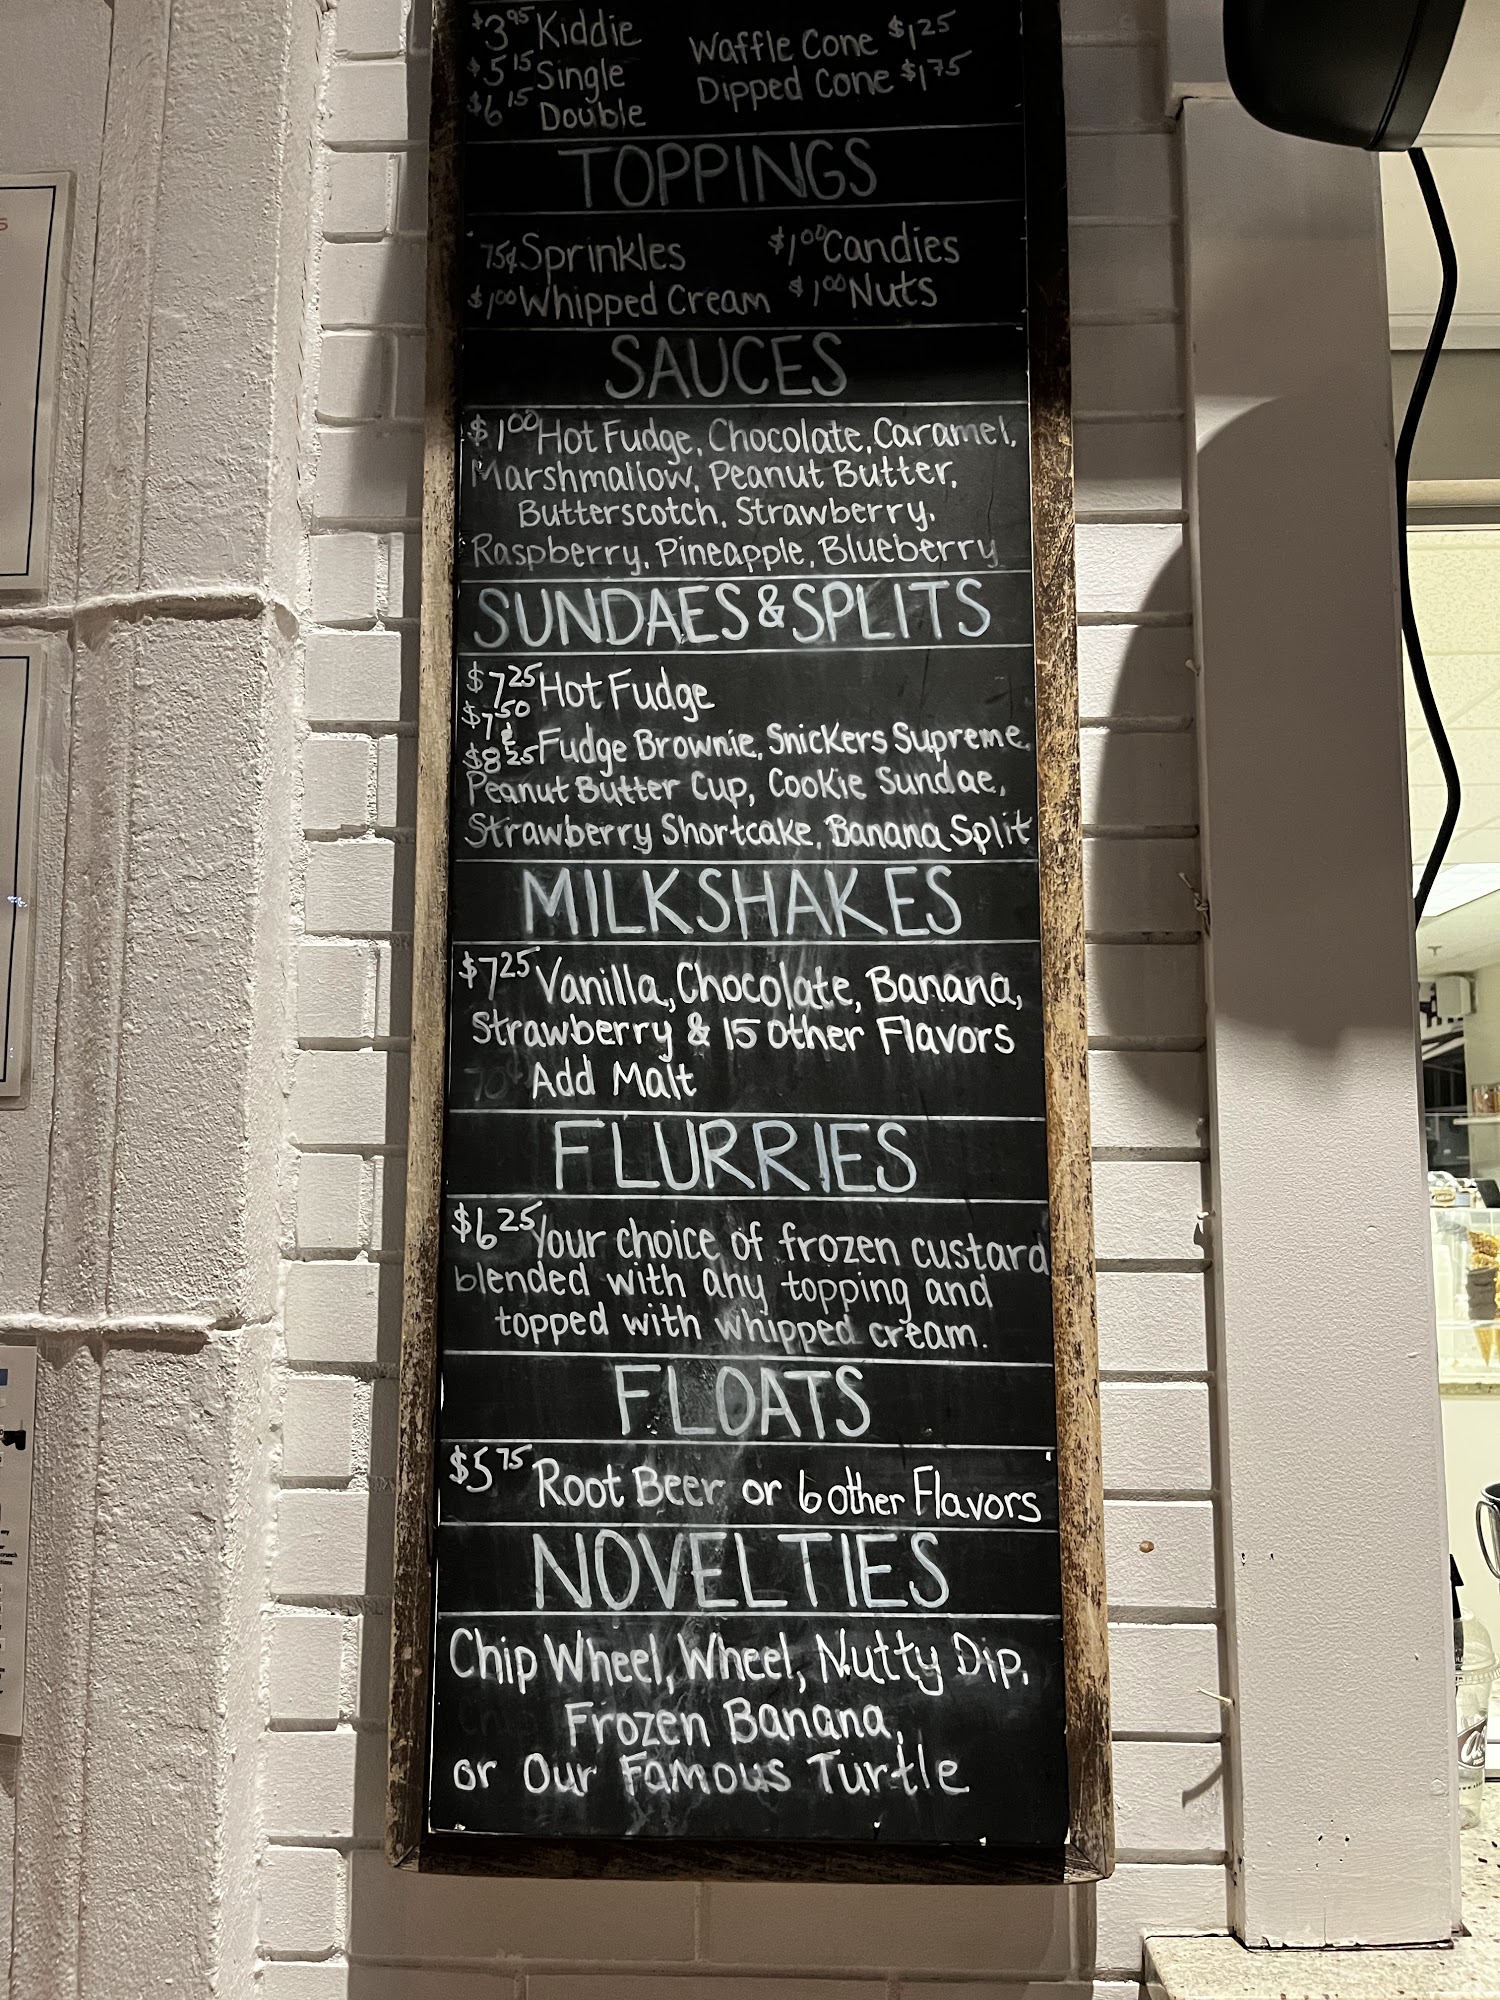 $3.95 Kiddie Waffle Cone $1.25
$5.15 Single Dipped Cone $1.75
$6.15 Double
TOPPINGS
75¢ Sprinkles $1.00 Candies
$1.00 Whipped Cream $1.00 Nuts
SAUCES
$1.00 Hot Fudge, Chocolate, Caramel,
Marshmallow, Peanut Butter,
Butterscotch, Strawberry,
Raspberry, Pineapple, Blueberry
SUNDAES & SPLITS
$7.25 Hot Fudge
$7.50
$8.25 Fudge Brownie, Snickers Supreme,
Peanut Butter Cup, Cookie Sundae,
Strawberry Shortcake, Banana Split
MILKSHAKES
$7.25 Vanilla, Chocolate, Banana,
Strawberry & 15 other Flavors
70¢ Add Malt
FLURRIES
$6.25 Your choice of frozen custard
blended with any topping and
topped with whipped cream.
FLOATS
$5.75 Root Beer or 6 other Flavors
NOVELTIES
Chip Wheel, Wheel, Nutty Dip,
Frozen Banana,
or Our Famous Turtle